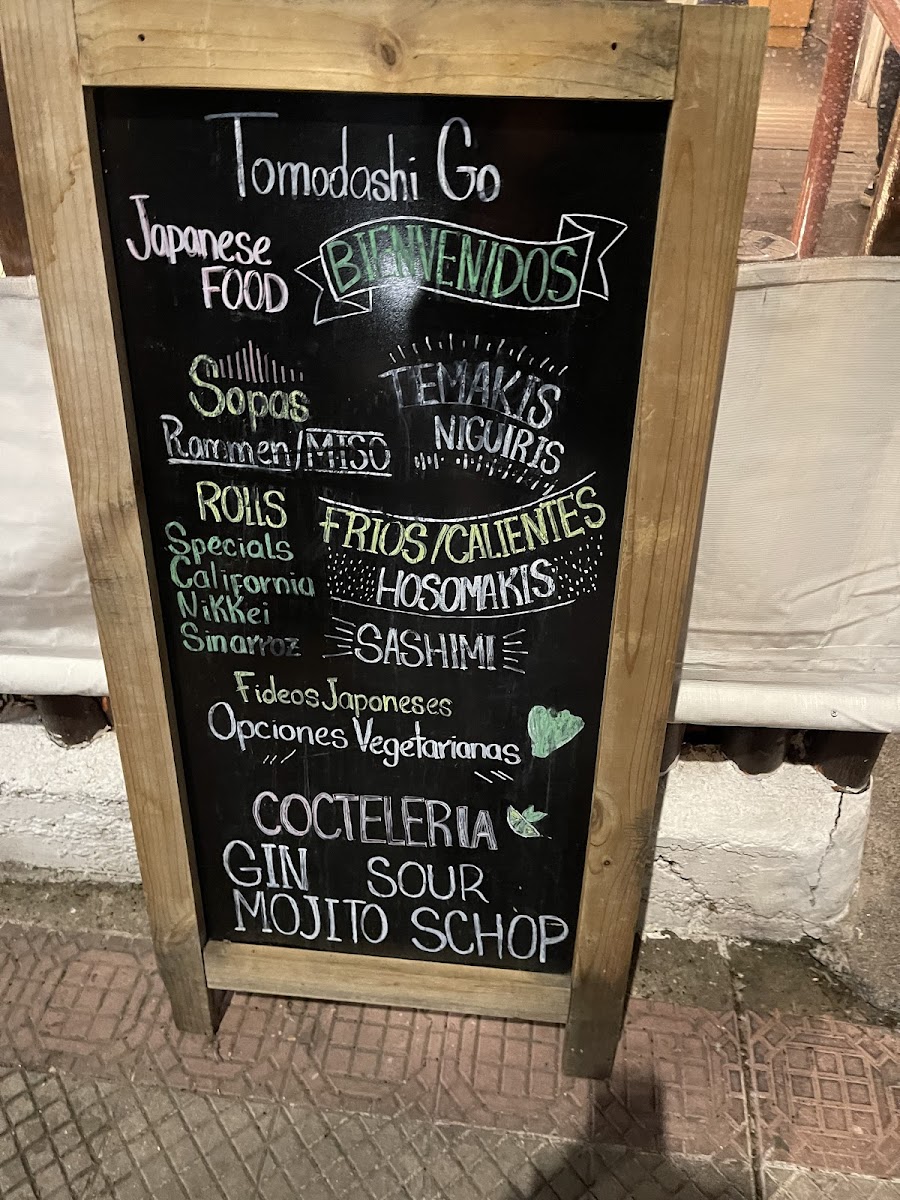 Tomodashi Go
Japanese
FOOD
BIENVENIDOS
Sopas
Rammen/MISO
TEMAKIS
NIGUIRIS
ROLLS
Specials
California
Nikkei
Sinarroz
FRIOS/CALIENTES
HOSOMAKIS
SASHIMI
Fideos Japoneses
Opciones Vegetarianas
COCTELERIA
GIN SOUR
MOJITO SCHOP